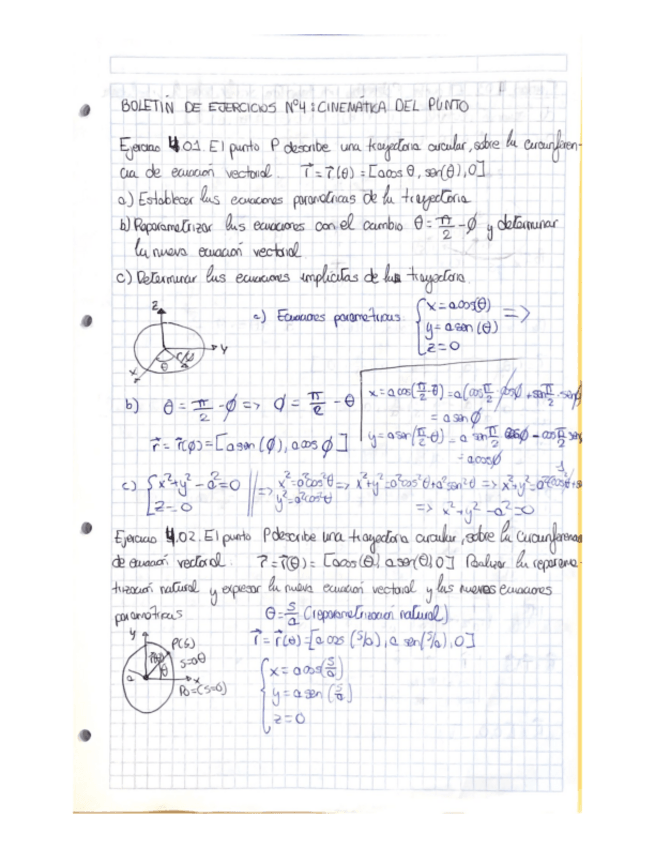 BOLETÍN DE EJERCICIOS Nº4: CINEMÁTICA DEL PUNTO
Ejercicio 4.01. El punto P describe una trayectoria circular, sobre la circunferen-
cia de ecuación vectorial. r⃗ = r⃗(θ) = [acos θ, sen(θ), 0]
a) Establecer las ecuaciones paramétricas de la trayectoria
b) Reparametrizar las ecuaciones con el cambio θ = π/2 - φ y determinar
la nueva ecuación vectorial
c) Determinar las ecuaciones implícitas de la trayectoria.
z
y
x
θ
a) Ecuaciones paramétricas
x = a cos(θ)
y = a sen(θ) =>
z = 0
b) θ = π/2 - φ => φ = π/2 - θ
r⃗ = r⃗(φ) = [a sen(φ), a cos φ]
x = a cos(π/2 - θ) = a(cos π/2 · cos φ + sen π/2 · sen φ
= a sen φ
y = a sen(π/2 - θ) = a sen π/2 cos φ - cos π/2 sen
= a cos φ
c) x² + y² - a² = 0
z = 0
=> x² = a²cos²θ
y² = a²cos²θ
=> x² + y² = a²cos²θ + a²sen²θ => x² + y² = a²(cos²θ + s
1
=> x² + y² - a² = 0
Ejercicio 4.02. El punto P describe una trayectoria circular, sobre la circunferencia
de ecuación vectorial. r⃗ = r⃗(θ) = [acos(θ), a sen(θ), 0] Realizar la reparame-
trización natural y expresar la nueva ecuación vectorial y las nuevas ecuaciones
paramétricas
θ = s/a (reparametrización natural)
r⃗ = r⃗(θ) = [a cos (s/a), a sen(s/a), 0]
x = a cos(s/a)
y = a sen(s/a)
z = 0
y
P(s)
s = aθ
θ
a
x
P0 = (s=0)